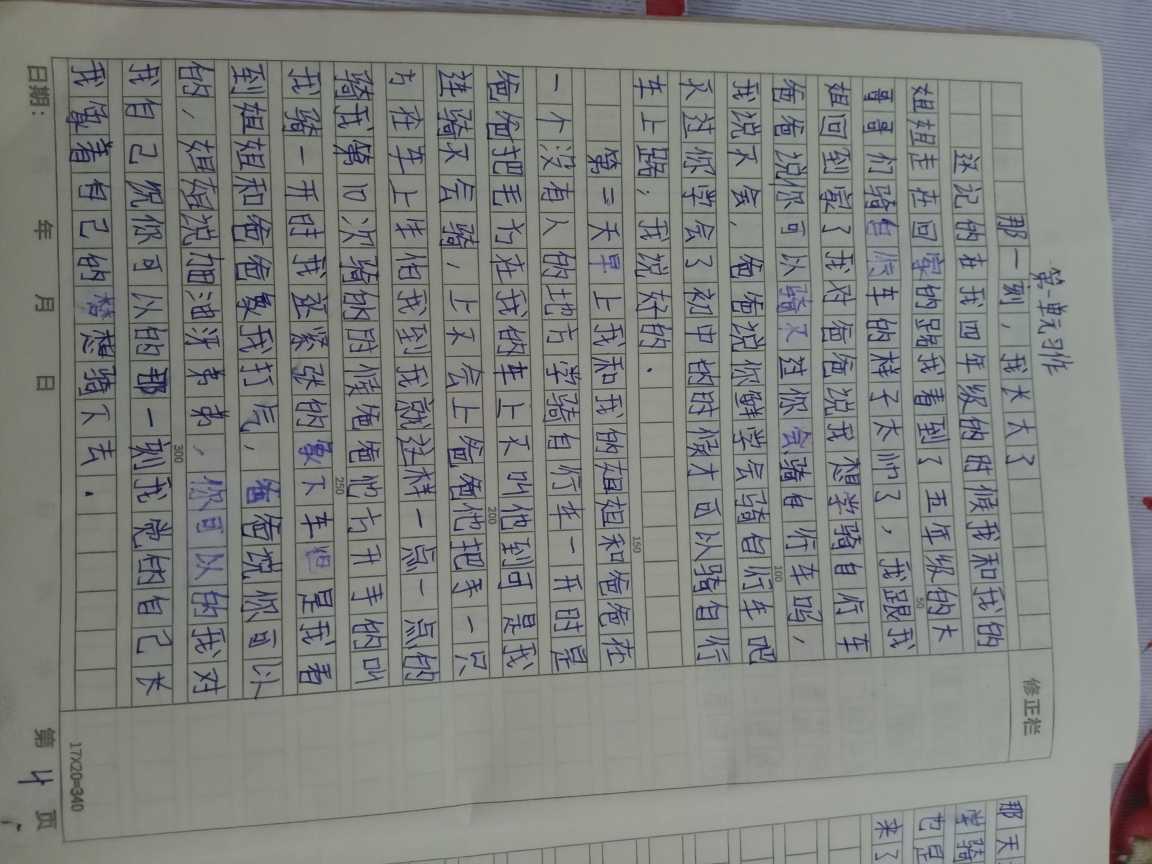 第一单元习作
修正栏
那一刻，我长大了
这记的在我四年级的时候我和我的
姐姐走在回家的路我看到了五年级的大
哥哥们骑自行车的样子太帅了，我跟我
姐回到家了我对爸爸说我想学骑自行车
爸爸说你可以骑不过你会骑自行车吗，
我说不会，爸爸说你鲜学会骑自行车吧
不过你学会了初中的时候才可以骑自行
车上路；我说好的．
第二天早上我和我的姐姐和爸爸在
一个没有人的地方学骑自行车一开时是
爸爸把毛方在我的车上不叫他到可是我
连骑不会骑，上不会上爸爸他把手一只
方在车上生怕我到我就这样一点一点的
骑我第10次骑的时候爸爸他方开手的叫
我骑一开时我还紧张的下车但是我看
到姐姐和爸爸我打气，爸爸说你可以
的，姐姐说加油呀弟弟，你可以的我对
我自己说你可以的那一刻我觉的自己长
我拿着自己的梦想骑下去．
50
100
150
200
250
300
17X20=340
日期： 年 月 日 第 4 页
那天
学骑
也是
来了